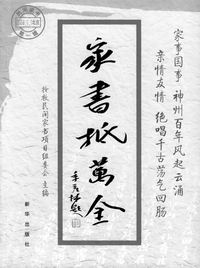 家事国事 神州百年风起云涌
亲情友情 绝唱千古荡气回肠
家书抵万金
季羡林题
抢救民间家书项目组委会 主编
新华出版社